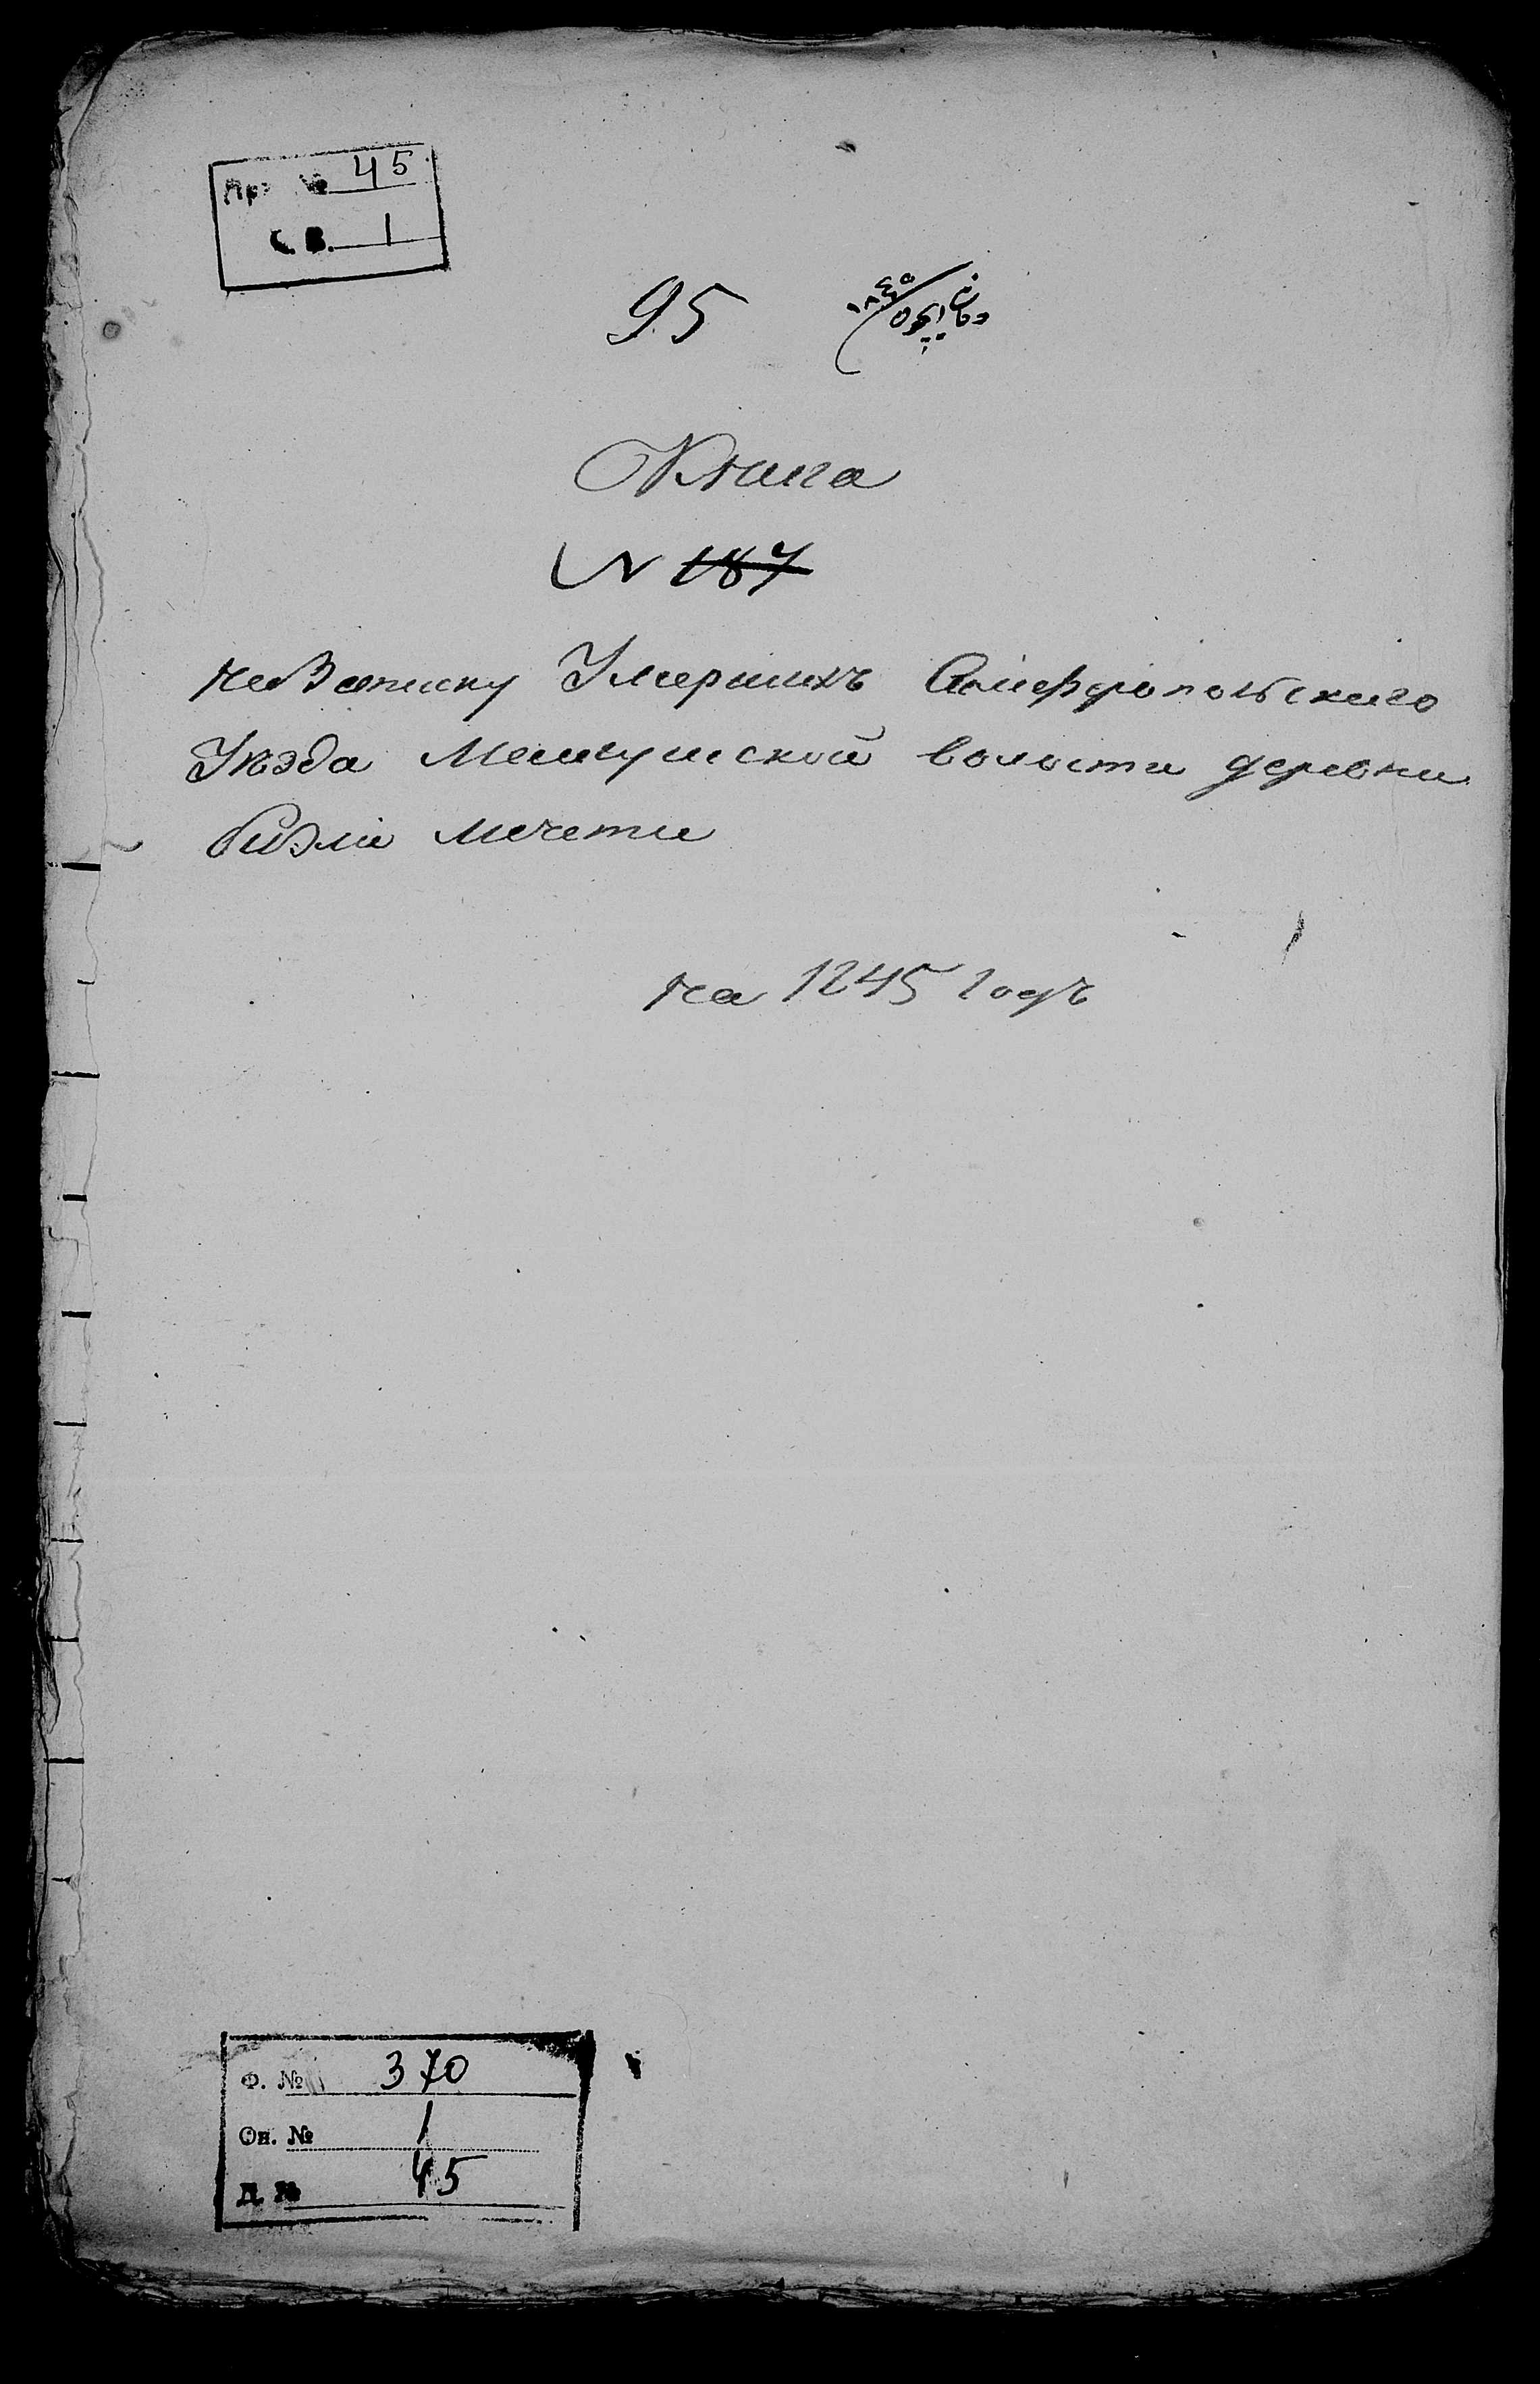 Пр. № 45
Св. 1
95
١٨٤٥
Книга
N 187
на Записку Умершихъ Симферопольскаго
Уѣзда Мангушской волости деревни
биэли мечети
на 1845 годъ
Ф. № 370
Оп. № 1
Д. № 45